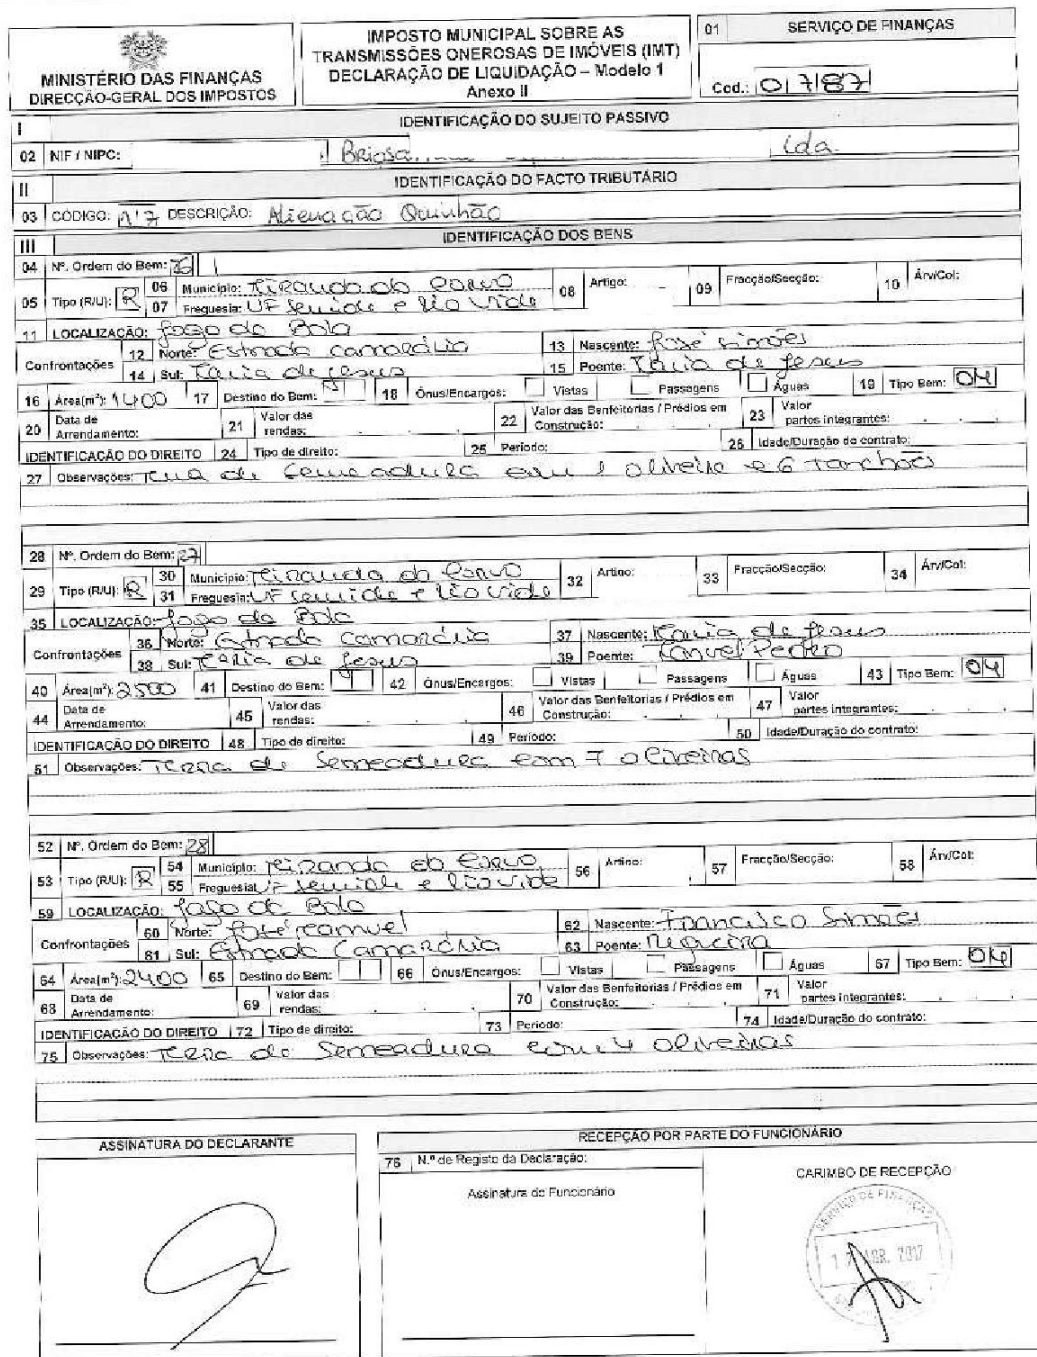 MINISTÉRIO DAS FINANÇAS
DIRECÇÃO-GERAL DOS IMPOSTOS
IMPOSTO MUNICIPAL SOBRE AS
TRANSMISSÕES ONEROSAS DE IMÓVEIS (IMT)
DECLARAÇÃO DE LIQUIDAÇÃO – Modelo 1
Anexo II
01 SERVIÇO DE FINANÇAS
Cod.: 0787
I IDENTIFICAÇÃO DO SUJEITO PASSIVO
02 NIF / NIPC: Briosa Lda.
II IDENTIFICAÇÃO DO FACTO TRIBUTÁRIO
03 CÓDIGO: Nº7 DESCRIÇÃO: Alienação Quinhão
III IDENTIFICAÇÃO DOS BENS
04 Nº. Ordem do Bem: 26
05 Tipo (R/U): R 06 Município: Miranda do Corvo 08 Artigo: 09 Fracção/Secção: 10 Árv/Col:
07 Freguesia: UF Semide e Rio Vide
11 LOCALIZAÇÃO: Jogo da Bola
Confrontações 12 Norte: Estrada Camarária 13 Nascente: José Simões
14 Sul: Maria de Jesus 15 Poente: Maria de Jesus
16 Área(m²): 1400 17 Destino do Bem: 18 Ónus/Encargos: Vistas Passagens Águas 19 Tipo Bem: 04
20 Data de Arrendamento: 21 Valor das rendas: 22 Valor das Benfeitorias / Prédios em Construção: 23 Valor partes integrantes:
IDENTIFICAÇÃO DO DIREITO 24 Tipo de direito: 25 Período: 26 Idade/Duração do contrato:
27 Observações: Terra de Semeadura com 1 oliveira e 6 tanchões
28 Nº. Ordem do Bem: 27
29 Tipo (R/U): R 30 Município: Miranda do Corvo 32 Artigo: 33 Fracção/Secção: 34 Árv/Col:
31 Freguesia: UF Semide e Rio Vide
35 LOCALIZAÇÃO: Jogo da Bola
Confrontações 36 Norte: Estrada Camarária 37 Nascente: Maria de Jesus
38 Sul: Maria de Jesus 39 Poente: Manuel Pedro
40 Área(m²): 2500 41 Destino do Bem: 42 Ónus/Encargos: Vistas Passagens Águas 43 Tipo Bem: 04
44 Data de Arrendamento: 45 Valor das rendas: 46 Valor das Benfeitorias / Prédios em Construção: 47 Valor partes integrantes:
IDENTIFICAÇÃO DO DIREITO 48 Tipo de direito: 49 Período: 50 Idade/Duração do contrato:
51 Observações: Terra de Semeadura com 7 oliveiras
52 Nº. Ordem do Bem: 28
53 Tipo (R/U): R 54 Município: Miranda do Corvo 56 Artigo: 57 Fracção/Secção: 58 Árv/Col:
55 Freguesia: UF Semide e Rio Vide
59 LOCALIZAÇÃO: Jogo da Bola
Confrontações 60 Norte: José Manuel 62 Nascente: Francisco Simões
61 Sul: Estrada Camarária 63 Poente: Regueira
64 Área(m²): 2400 65 Destino do Bem: 66 Ónus/Encargos: Vistas Passagens Águas 67 Tipo Bem: 04
68 Data de Arrendamento: 69 Valor das rendas: 70 Valor das Benfeitorias / Prédios em Construção: 71 Valor partes integrantes:
IDENTIFICAÇÃO DO DIREITO 72 Tipo de direito: 73 Período: 74 Idade/Duração do contrato:
75 Observações: Terra de Semeadura com 4 oliveiras
ASSINATURA DO DECLARANTE
RECEPÇÃO POR PARTE DO FUNCIONÁRIO
76 N.º de Registo da Declaração:
Assinatura do Funcionário
CARIMBO DE RECEPÇÃO
SERVIÇO DE FINANÇAS
ABR. 2017